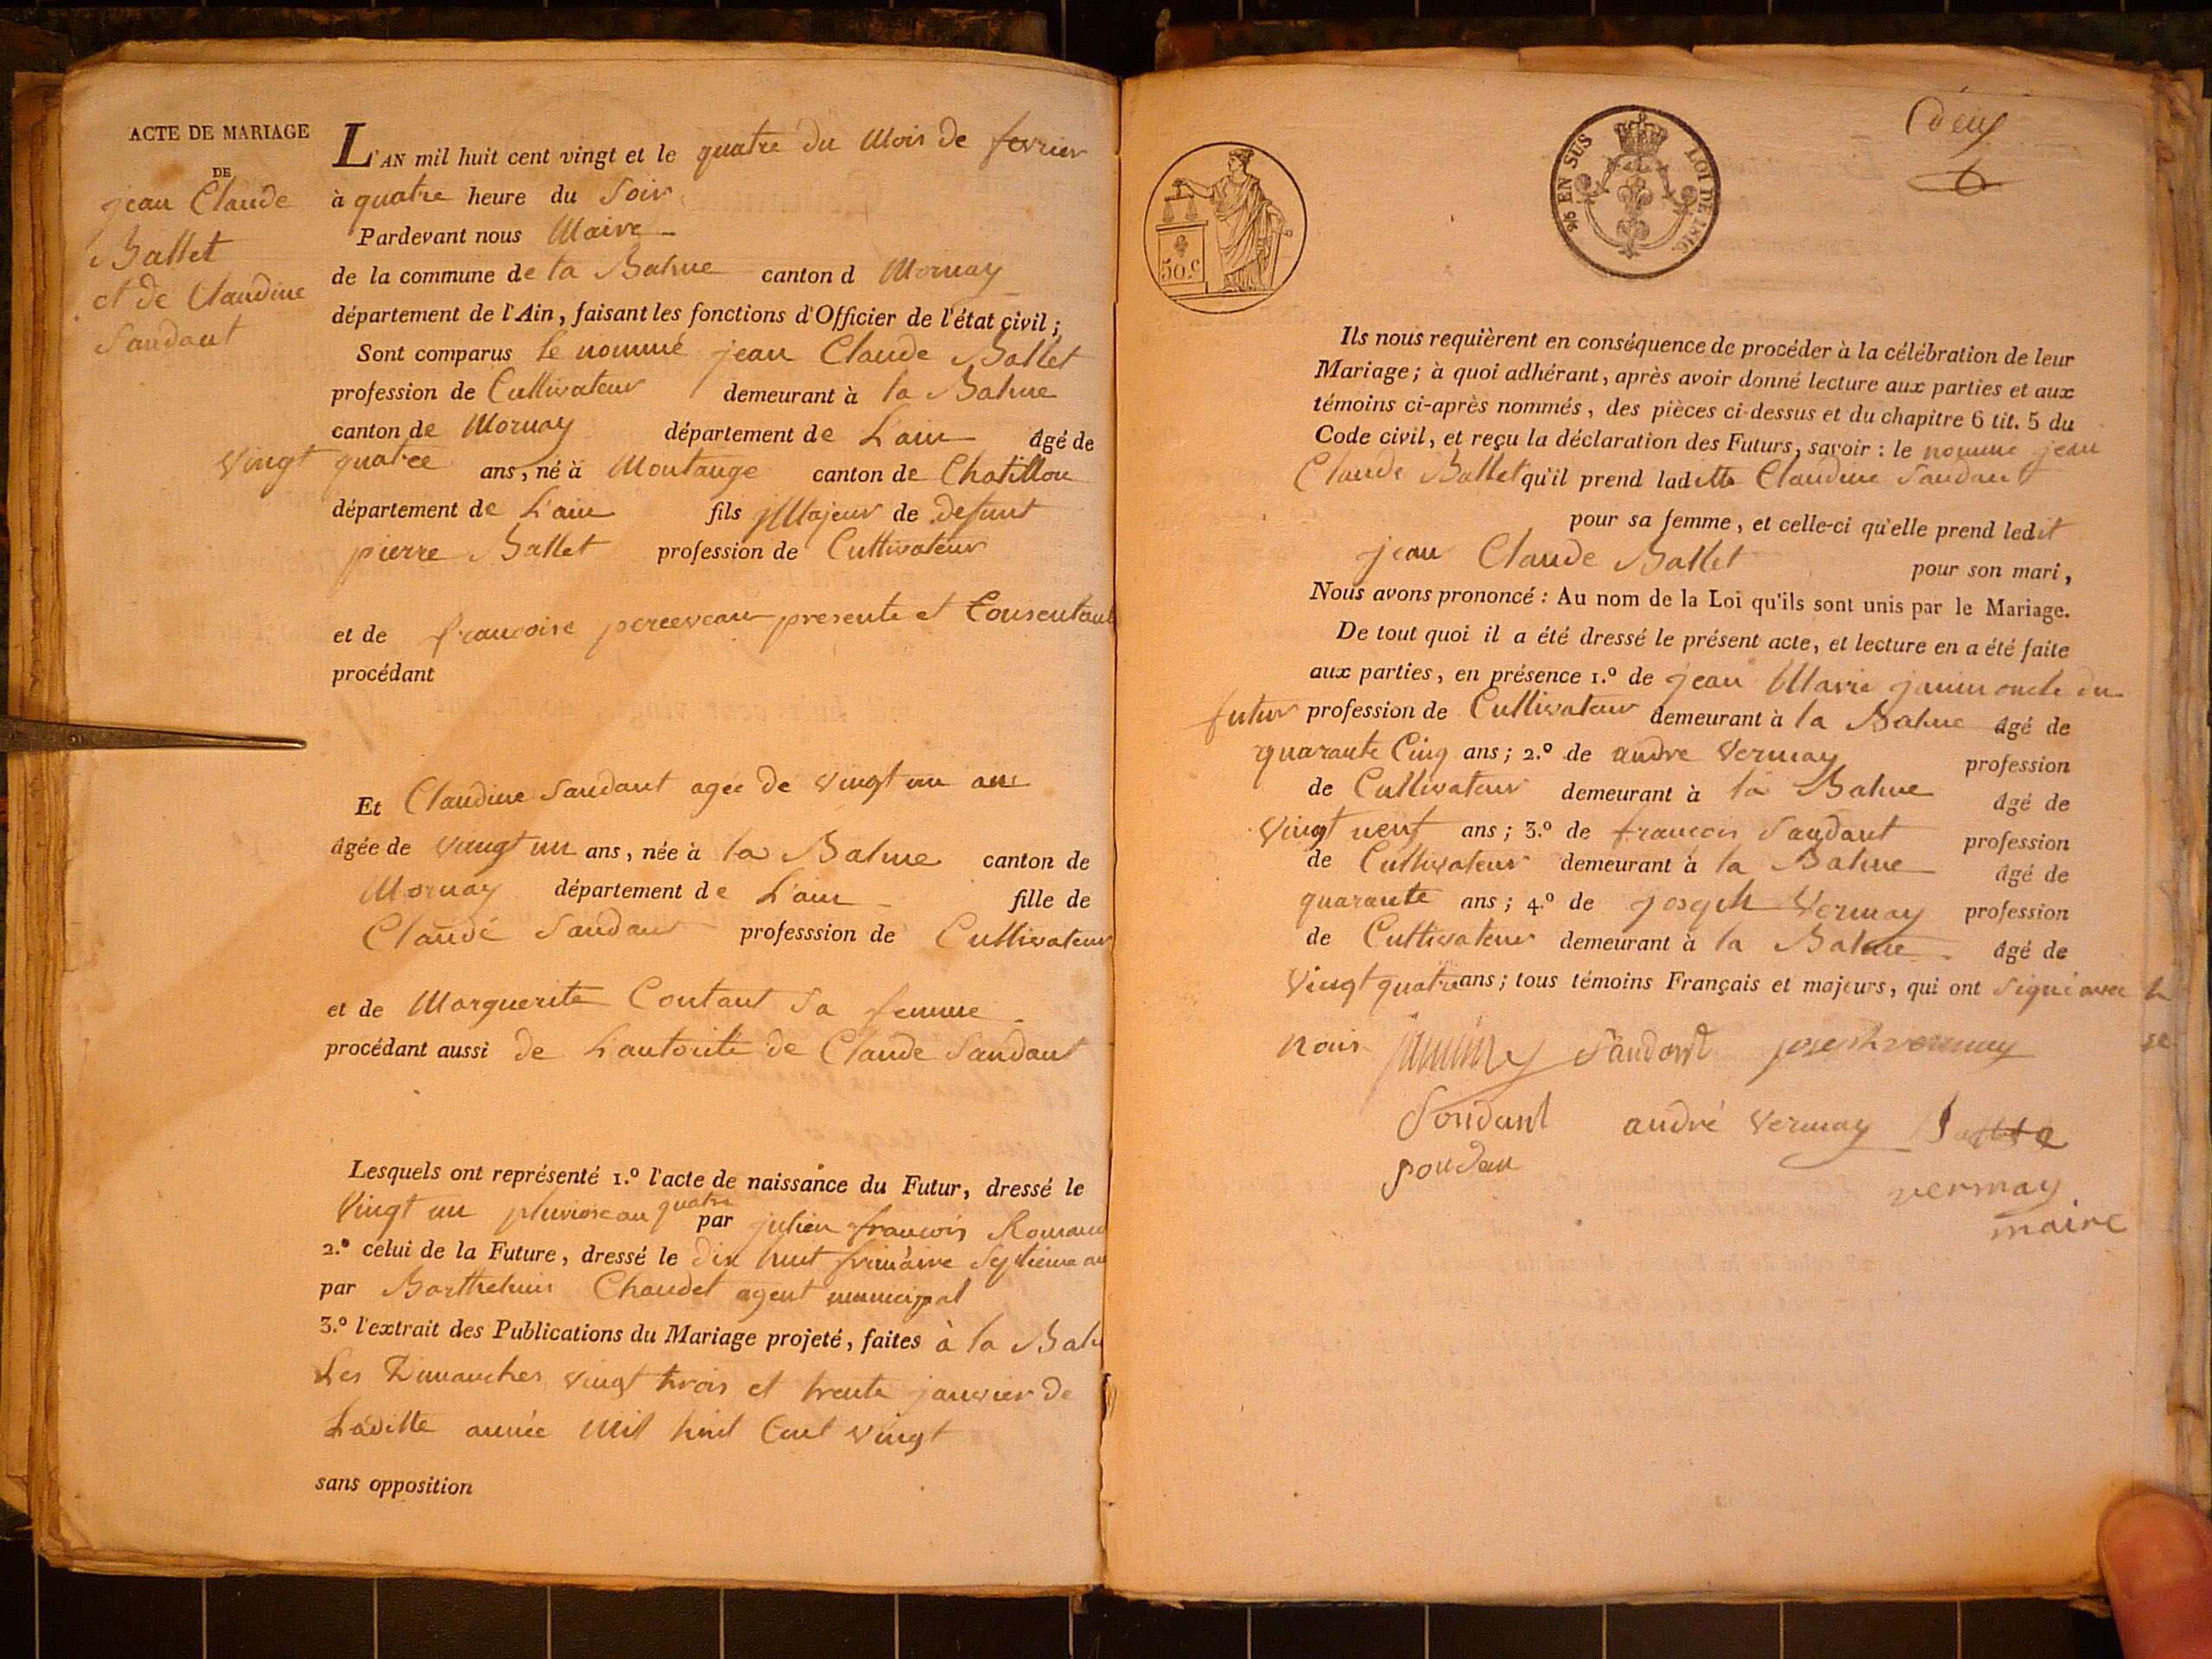 ACTE DE MARIAGE
DE
jean Claude
Ballet
et de Claudine
Sandant
L'AN mil huit cent vingt et le quatre du Mois de fevrier
à quatre heure du Soir
Pardevant nous Maire
de la commune de la Balme canton d Mornay
département de l'Ain, faisant les fonctions d'Officier de l'état civil;
Sont comparus le nommé jean Claude Ballet
profession de Cultivateur demeurant à la Balme
canton de Mornay département de L'ain âgé de
vingt quatre ans, né à Montange canton de Chatillon
département de L'ain fils Majeur de defunt
pierre Ballet profession de Cultivateur
et de francoise presente et Consentant
procédant
Et Claudine Sandant agée de vingt un ans
âgée de vingt un ans, née à la Balme canton de
Mornay département de L'ain fille de
Claude Sandant professsion de Cultivateur
et de Marguerite Contant Sa femme
procédant aussi de L'autorité de Claude Sandant
Lesquels ont représenté 1.º l'acte de naissance du Futur, dressé le
Vingt un pluviose an quatre par julien francois
2.º celui de la Future, dressé le dix huit frimaire Septieme an
par Barthelmi Chaudet agent municipal
3.º l'extrait des Publications du Mariage projeté, faites à la Balme
Les Dimanches vingt trois et trente janvier de
Laditte année Mil huit Cent vingt
sans opposition
deux
50.C
EN SUS
LOI DE 1816.
Ils nous requièrent en conséquence de procéder à la célébration de leur
Mariage; à quoi adhérant, après avoir donné lecture aux parties et aux
témoins ci-après nommés, des pièces ci-dessus et du chapitre 6 tit. 5 du
Code civil, et reçu la déclaration des Futurs, savoir: le nomme jean
Claude Ballet qu'il prend laditte Claudine Sandant
pour sa femme, et celle-ci qu'elle prend ledit
jean Claude Ballet pour son mari,
Nous avons prononcé: Au nom de la Loi qu'ils sont unis par le Mariage.
De tout quoi il a été dressé le présent acte, et lecture en a été faite
aux parties, en présence 1.º de jean Marie oncle du
futur profession de Cultivateur demeurant à la Balme âgé de
quarante Cinq ans; 2.º de andre Vermay profession
de Cultivateur demeurant à la Balme âgé de
Vingt neuf ans; 3.º de françois Sandant profession
de Cultivateur demeurant à la Balme âgé de
quarante ans; 4.º de joseph Vermay profession
de Cultivateur demeurant à la Balme âgé de
Vingt quatre ans; tous témoins Français et majeurs, qui ont signé avec
nous Sandant joseph vermay
Sondant andré Vermay
vermay
maire